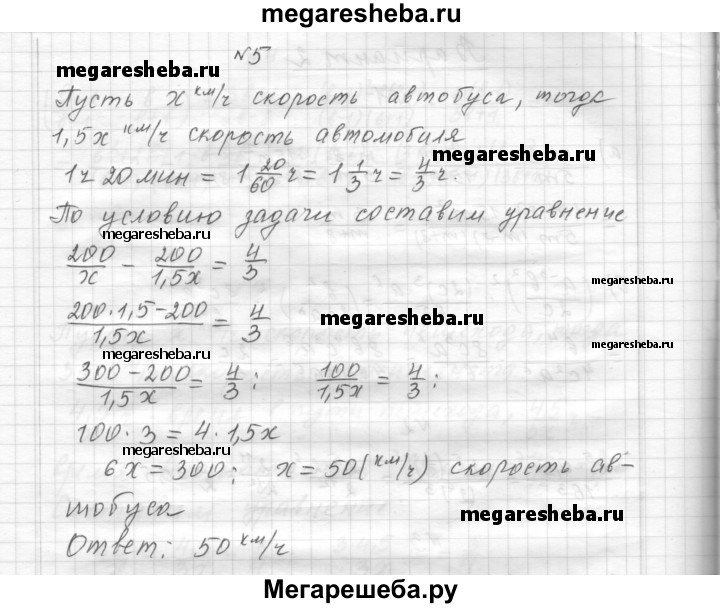 megaresheba.ru
№5
megaresheba.ru
Пусть x км/ч скорость автобуса, тогда
1,5x км/ч скорость автомобиля
megaresheba.ru
1ч 20мин = 1 20/60 ч = 1 1/3 ч = 4/3 ч.
По условию задачи составим уравнение
megaresheba.ru
200/x − 200/1,5x = 4/3
megaresheba.ru
200·1,5−200/1,5x = 4/3
megaresheba.ru
megaresheba.ru
300−200/1,5x = 4/3; 100/1,5x = 4/3;
100·3 = 4·1,5x
megaresheba.ru
6x = 300; x = 50(км/ч) скорость ав-
тобуса
megaresheba.ru
Ответ: 50 км/ч
Мегарешеба.ру